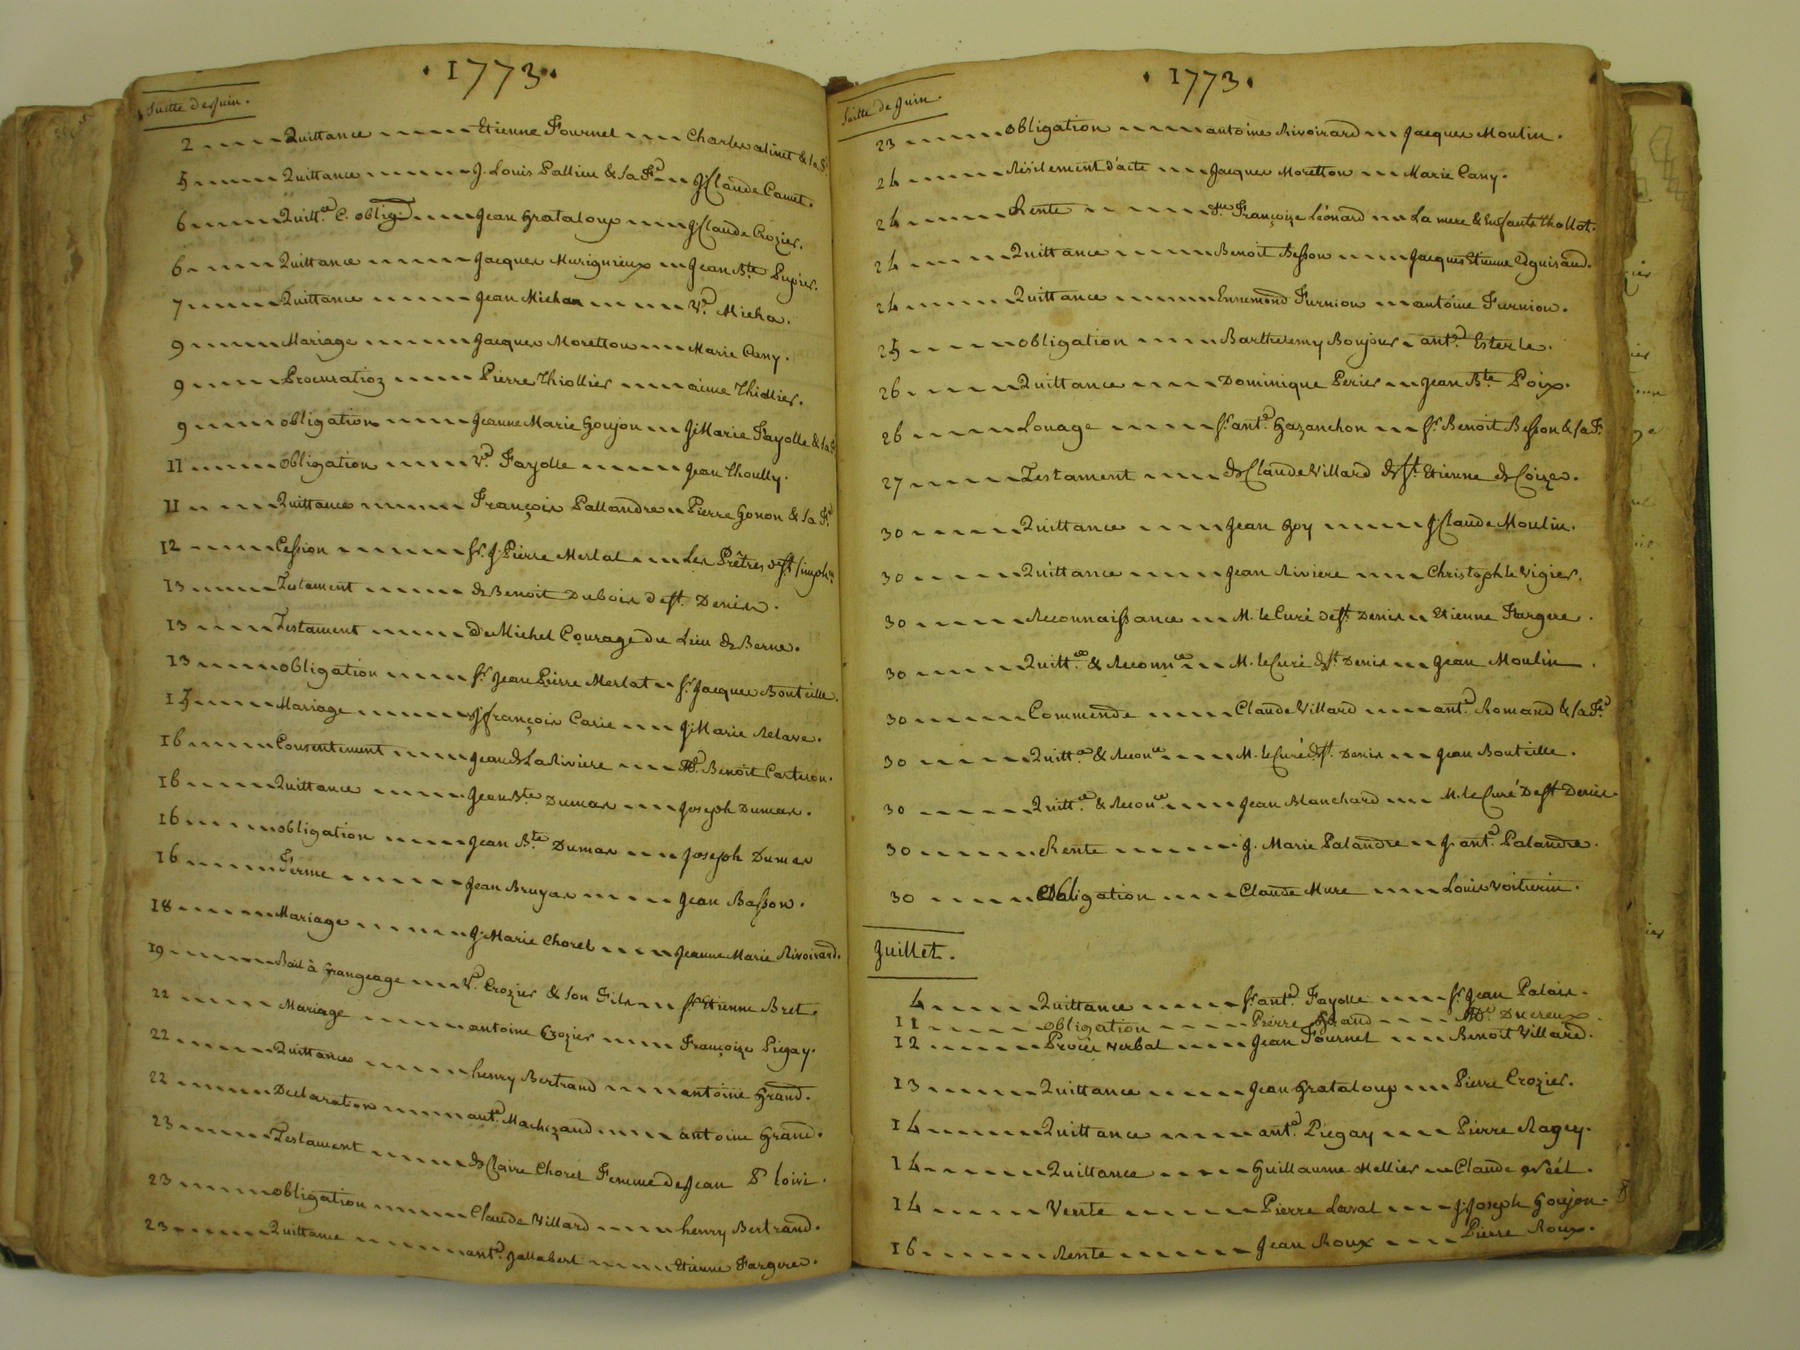 · 1773 ·
Suitte de Juin.
2 Quittance Etienne Fournel Charles
5 Quittance J. Louis Pallieu & sa Fe. J. Claude Canet.
6 Quitt.ce C. oblig. Jean Grataloup J. Claude Crozier.
6 Quittance Jacques Murignieux Jean B.te Pupier.
7 Quittance Jean Michan Ve. Micha.
9 Mariage Jacques Moretton Marie Cany.
9 Procuration Pierre Thiollier aimé Thiollier.
9 obligation Jeanne Marie Goujon J. Marie Fayolle & sa
11 obligation Ve. Fayolle Jean Thoully.
11 Quittance François Pallandre Pierre Gonon & sa Fe.
12 Cession Sr. J. Pierre Merlat Les Prêtres de St. Simph.
13 Testament de Benoit Dubois de St. Denis.
13 Testament de Michel Courage du Lieu de Berne.
13 obligation Sr. Jean Pierre Merlat Sr. Jacques Bouteille.
15 Mariage J. françois Carie J. Marie Relave.
16 Consentement Jean de La Riviere Benoit Carteron.
16 Quittance Jean B.te Dumas Joseph Dumas.
16 obligation Jean B.te Dumas Joseph Dumas
16 Ferme Jean Bruyas Jean Basson.
18 Mariage J. Marie Chorel Jeanne Marie Rivoirard.
19 Bail à Grangeage Ve. Crozier & son Fils Sr. Etienne Bret.
22 Mariage antoine Crozier Françoize Piegay.
22 Quittance henry Bertrand antoine Grand.
22 Declaration ante. Machizaud antoine Grand.
23 Testament de Claire Chorel Femme de Jean
23 obligation Claude Villard henry Bertrand.
23 Quittance ante. Jallabert Etienne Fargere.
· 1773 ·
Suitte de Juin.
23 obligation antoine Rivoirard Jacques Moulin.
24 Résilement d'acte Jacques Moretton Marie Cany.
24 Rente Françoize Léonard La mere & Enfants Thollot.
24 Quittance Benoit Besson Jacques Etienne
24 Quittance Ennemond Furnion antoine Furnion.
25 obligation Barthelemy Bonjour ante. Esterle.
26 Quittance Dominique Perier Jean B.te Poix.
26 Louage Sr. ante. Gazanchon Sr. Benoit Besson & sa Fe.
27 Testament de Claude Villard de St. Etienne de Coize.
30 Quittance Jean Goy J. Claude Moulin.
30 Quittance Jean Riviere Christophle Vigier.
30 Reconnaissance M. le Curé de St. Denis Etienne Fargere.
30 Quitt.ce & Reconn.ce M. le Curé de St. Denis Jean Moulin.
30 Commende Claude Villard ante. Romand & sa Fe.
30 Quitt.ce & Recon.ce M. le Curé de St. Denis Jean Bouteille.
30 Quitt.ce & Recon.ce Jean Blanchard M. le Curé De St. Denis.
30 Rente J. Marie Palandre J. ante. Palandre.
30 Obligation Claude Mure Louis Voiturin.
Juillet.
4 Quittance Sr. ante. Fayolle Sr. Jean Palais.
11 obligation Pierre Grand Ducreux.
12 Procès verbal Jean Fournel Benoit Villard.
13 Quittance Jean Grataloup Pierre Crozier.
14 Quittance ante. Piegay Pierre Ragey.
14 Quittance Guillaume Mellier Claude
14 Vente Pierre Laval J. Joseph Goujon.
16 Rente Jean Roux Pierre Roux.